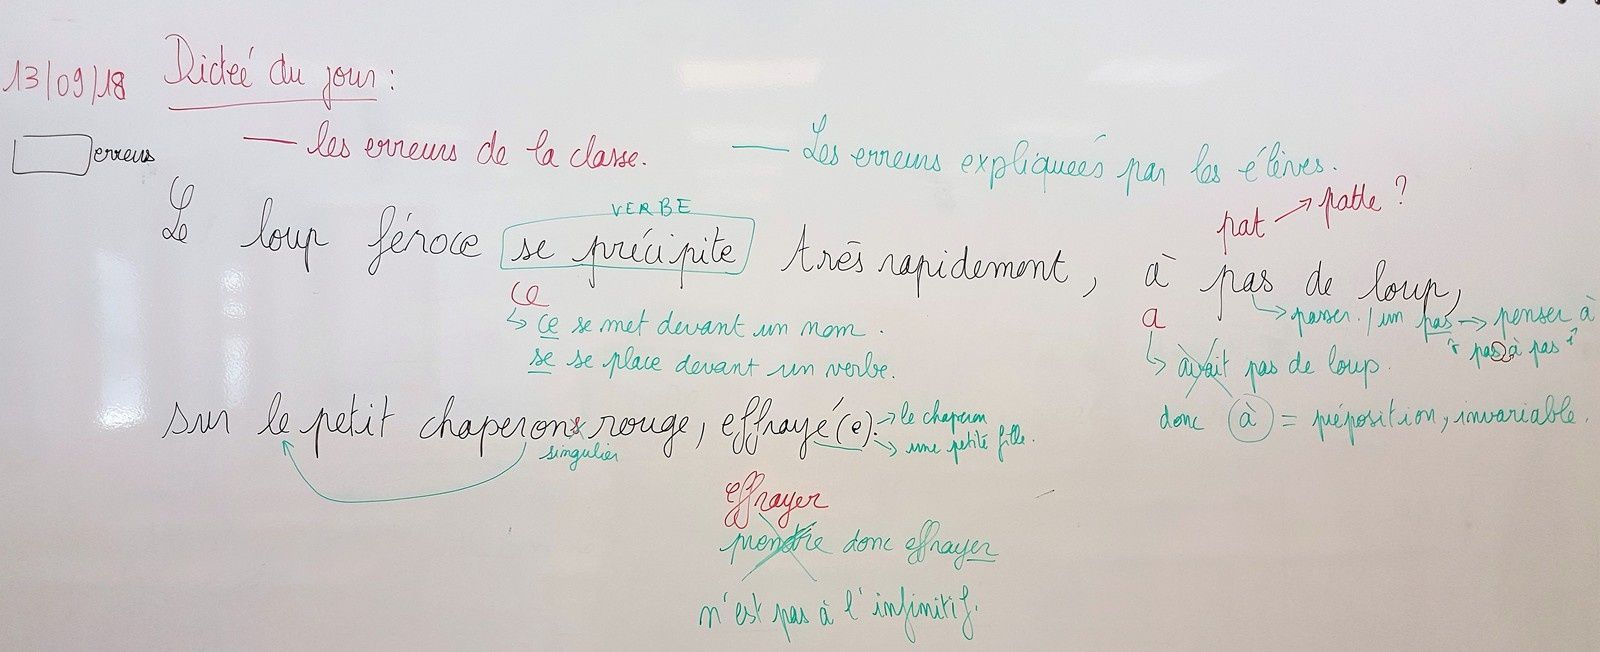 13/09/18 Dictée du jour :
erreurs
— les erreurs de la classe.
— Les erreurs expliqueés par les élèves.
pat → patte ?
VERBE
Le loup féroce se précipite très rapidement, à pas de loup,
ce
a
↳ ce se met devant un nom.
→ passer. / un pas → penser à
"pas à pas"
se se place devant un verbe.
↳ avait pas de loup.
donc à = préposition, invariable.
sur le petit chaperons rouge, effrayé(e).
→ le chaperon
→ une petite fille.
singulier
effrayer
prendre donc effrayer
n'est pas à l'infinitif.